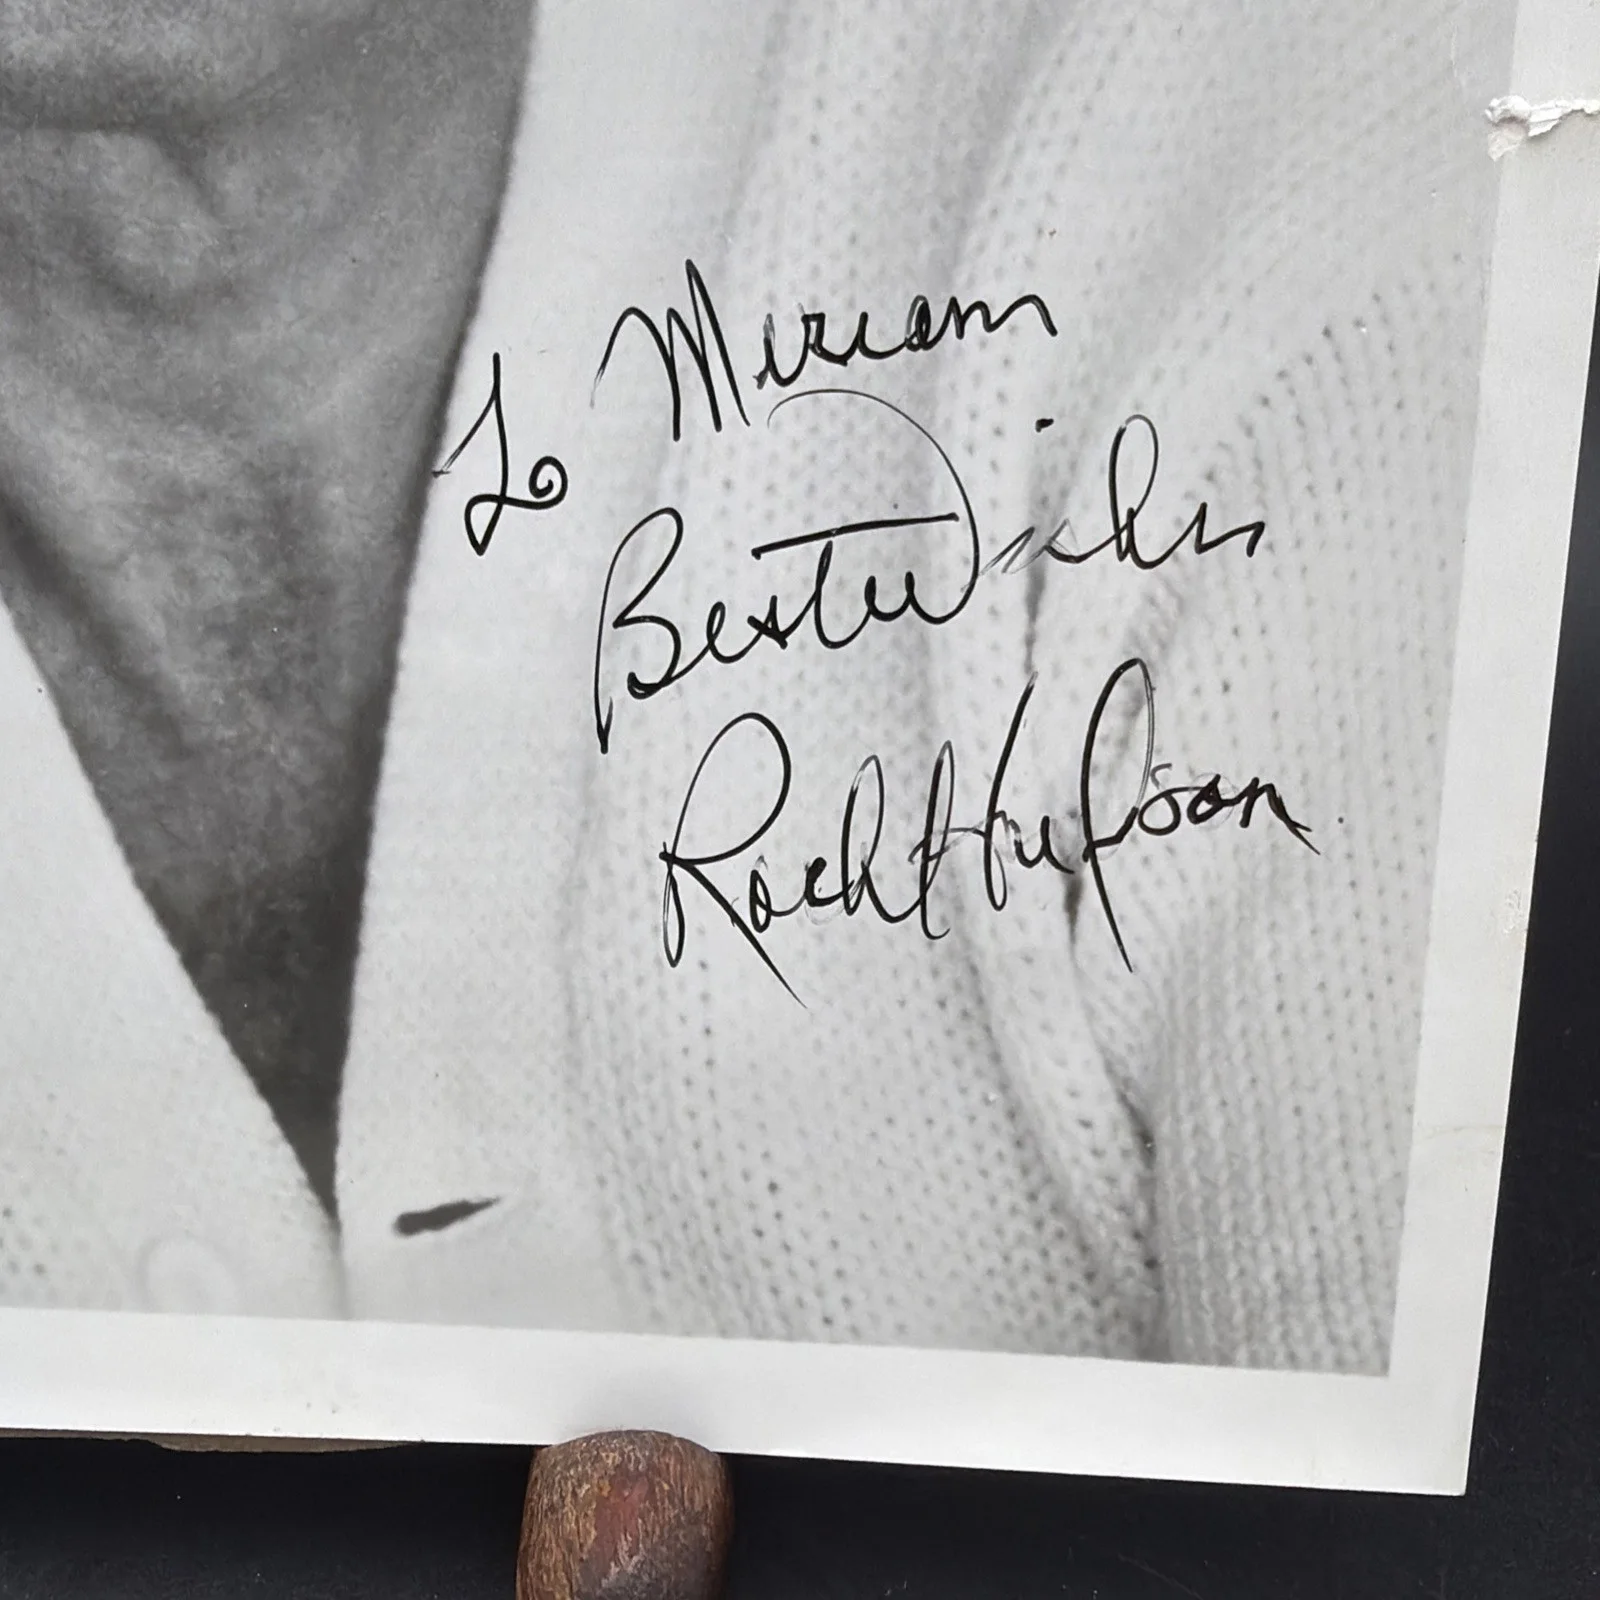 To Miriam
Best Wishes
Rock Hudson